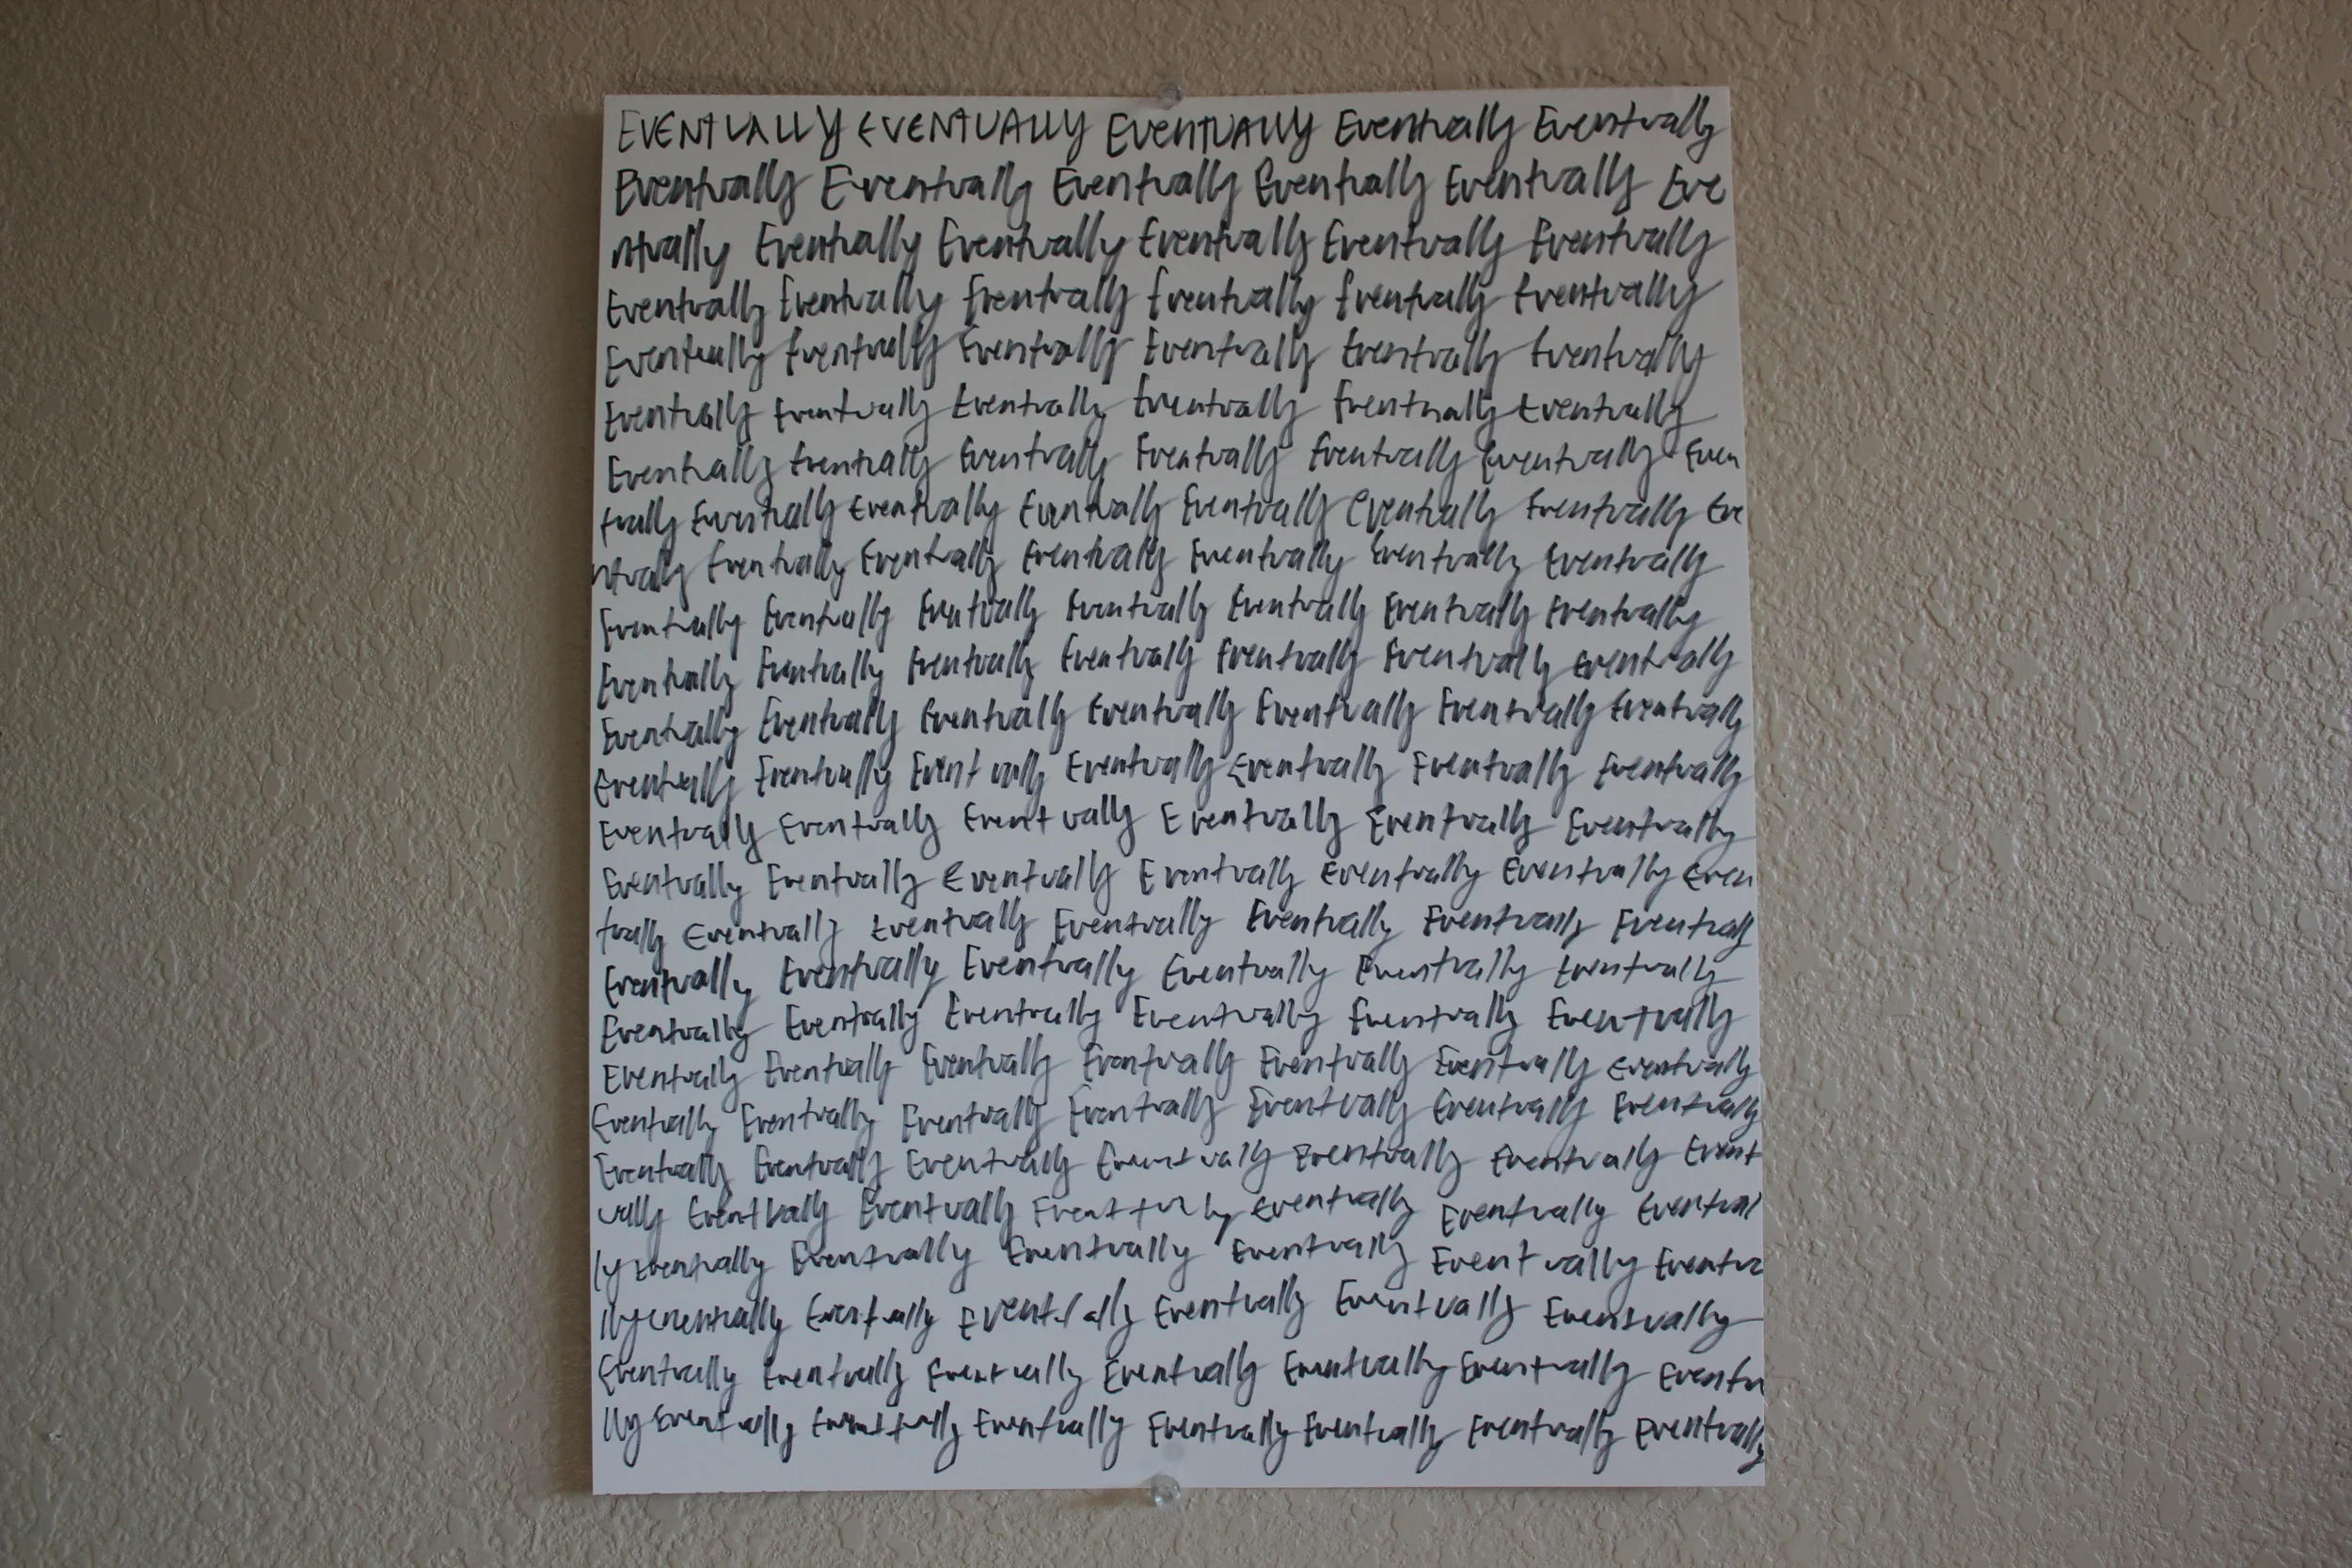 EVENTUALLY EVENTUALLY EVENTUALLY Eventually Eventually
Eventually Eventually Eventually Eventually Eventually Eve
ntually Eventually Eventually Eventually Eventually Eventually
Eventually Eventually Eventually Eventually Eventually Eventually
Eventually Eventually Eventually Eventually Eventually Eventually
Eventually Eventually Eventually Eventually Eventually Eventually
Eventually Eventually Eventually Eventually Eventually Eventually Even
tually Eventually Eventually Eventually Eventually Eventually Eventually Eve
ntually Eventually Eventually Eventually Eventually Eventually Eventually
Eventually Eventually Eventually Eventually Eventually Eventually Eventually
Eventually Eventually Eventually Eventually Eventually Eventually Eventually
Eventually Eventually Eventually Eventually Eventually Eventually Eventually
Eventually Eventually Eventually Eventually Eventually Eventually Eventually
Eventually Eventually Eventually Eventually Eventually Eventually
Eventually Eventually Eventually Eventually Eventually Eventually Even
tually Eventually Eventually Eventually Eventually Eventually Eventually
Eventually Eventually Eventually Eventually Eventually Eventually
Eventually Eventually Eventually Eventually Eventually Eventually
Eventually Eventually Eventually Eventually Eventually Eventually Eventually
Eventually Eventually Eventually Eventually Eventually Eventually Eventually
Eventually Eventually Eventually Eventually Eventually Eventually Event
ually Eventually Eventually Eventually Eventually Eventually Eventual
ly Eventually Eventually Eventually Eventually Eventually Eventua
lly eventually Eventually Eventually Eventually Eventually Eventually
Eventually Eventually Eventually Eventually Eventually Eventually Eventu
lly Eventually Eventually Eventually Eventually Eventually Eventually Eventually